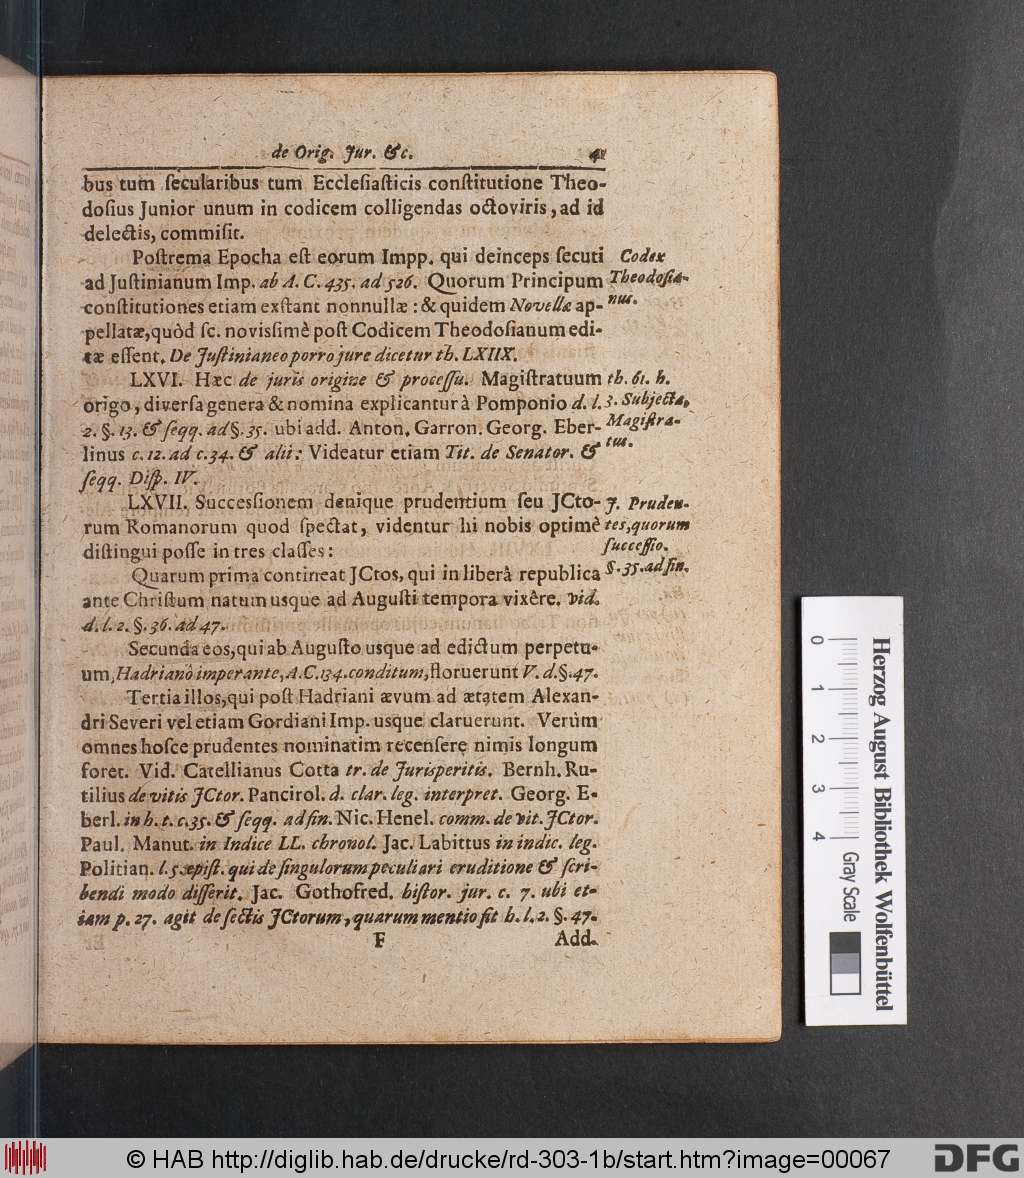 de Orig. Jur. &c. 41
bus tum ſecularibus tum Eccleſiaſticis conſtitutione Theo-
doſius Junior unum in codicem colligendas octoviris, ad id
delectis, commiſit.
Poſtrema Epocha eſt eorum Impp. qui deinceps ſecuti
ad Juſtinianum Imp. ab A. C. 435. ad 526. Quorum Principum
conſtitutiones etiam exſtant nonnullæ: & quidem Novellæ ap-
pellatæ, quòd ſc. noviſſimè poſt Codicem Theodoſianum edi-
tæ eſſent. De Juſtinianeo porro jure dicetur th. LXIIX.
Codex
Theodoſia-
nus.
LXVI. Hæc de juris origine & proceſſu. Magiſtratuum
origo, diverſa genera & nomina explicantur à Pomponio d. l.
2. §. 13. & ſeqq. ad §. 35. ubi add. Anton. Garron. Georg. Eber-
linus c. 12. ad c. 34. & alii: Videatur etiam Tit. de Senator. &
ſeqq. Diſp. IV.
th. 61. h.
3. Subjecta,
Magiſtra-
tus.
LXVII. Succeſſionem denique prudentium ſeu JCto-
rum Romanorum quod ſpectat, videntur hi nobis optimè
diſtingui poſſe in tres claſſes:
Quarum prima contineat JCtos, qui in liberâ republica
ante Chriſtum natum usque ad Auguſti tempora vixêre. vid.
d. l. 2. §. 36. ad 47.
J. Pruden-
tes, quorum
ſucceſſio.
§. 35. ad fin.
Secunda eos, qui ab Auguſto usque ad edictum perpetu-
um, Hadriano imperante, A. C. 134. conditum, floruerunt V. d. §. 47.
Tertia illos, qui poſt Hadriani ævum ad ætatem Alexan-
dri Severi vel etiam Gordiani Imp. usque claruerunt. Verùm
omnes hoſce prudentes nominatim recenſere nimis longum
foret. Vid. Catellianus Cotta tr. de Jurisperitis. Bernh. Ru-
tilius de vitis JCtor. Pancirol. d. clar. leg. interpret. Georg. E-
berl. in h. t. c. 35. & ſeqq. ad fin. Nic. Henel. comm. de vit. JCtor.
Paul. Manut. in Indice LL. chronol. Jac. Labittus in indic. leg.
Politian. l. 5. epiſt. qui de ſingulorum peculiari eruditione & ſcri-
bendi modo diſſerit. Jac. Gothofred. hiſtor. jur. c. 7. ubi et-
iam p. 27. agit de ſectis JCtorum, quarum mentio fit h. l. 2. §. 47.
F Add.
Herzog August Bibliothek Wolfenbüttel
0 1 2 3 4 Gray Scale
© HAB http://diglib.hab.de/drucke/rd-303-1b/start.htm?image=00067
DFG